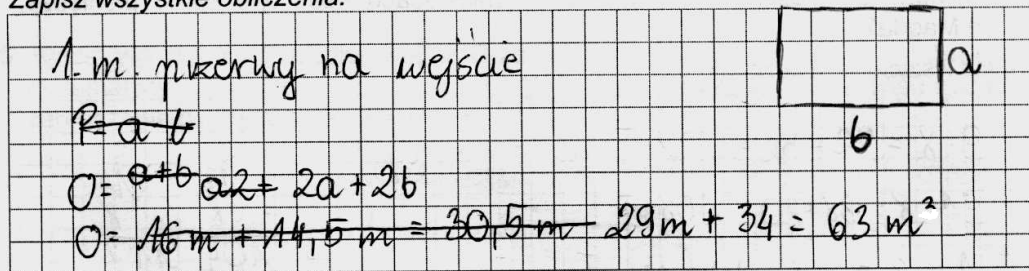 Zapisz wszystkie obliczenia.
1. m. przerwy na wejście
a
b
P= a b
O= a+b a2+ 2a + 2b
O= 16 m + 14,5 m = 30,5 m 29m + 34 = 63 m²